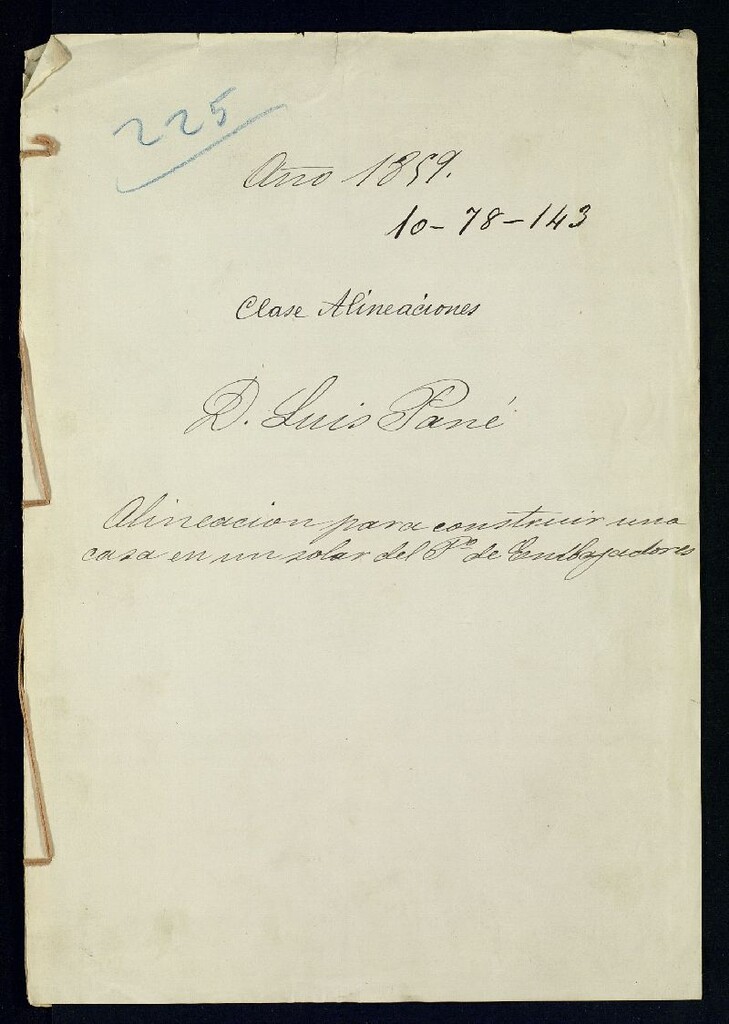 225
Año 1859.
10-78-143
Clase Alineaciones
D. Luis Pané
Alineacion para construir una
casa en un solar del Pº de Embajadores